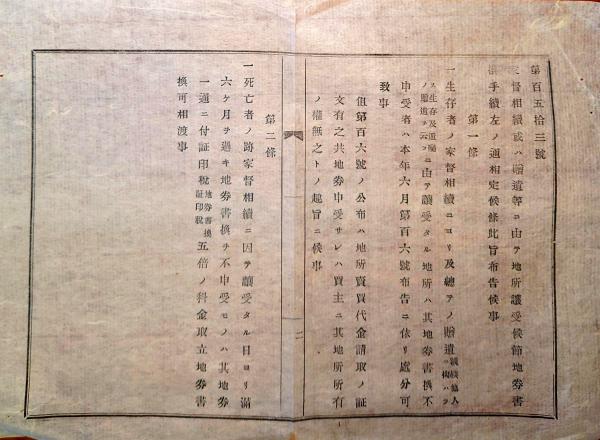 第百五拾三號
家督相續或ハ贈遺等ニ由テ地所讓受候節地券書
換手續左ノ通相定候條此旨布告候事
第一條
一生存者ノ家督相續ニヨリ及總テノ贈遺親族他人ニ拘ハラ
ス生存及遺囑ノ贈遺ヲ云フニ由テ讓受タル地所ハ其地券書換不
申受者ハ本年六月第百六號布告ニ依リ處分可
致事
但第百六號ノ公布ハ地所賣買代金請取ノ証
文有之共地券申受サレハ買主ニ其地所所有
ノ權無之トノ趣旨ニ候事
二
第二條
一死亡者ノ跡家督相續ニ因テ讓受タル日ヨリ滿
六ケ月ヲ過キ地券書換ヲ不申受モノハ其地券
一通ニ付証印稅地券書換証印稅五倍ノ科金取立地券書
換可相渡事